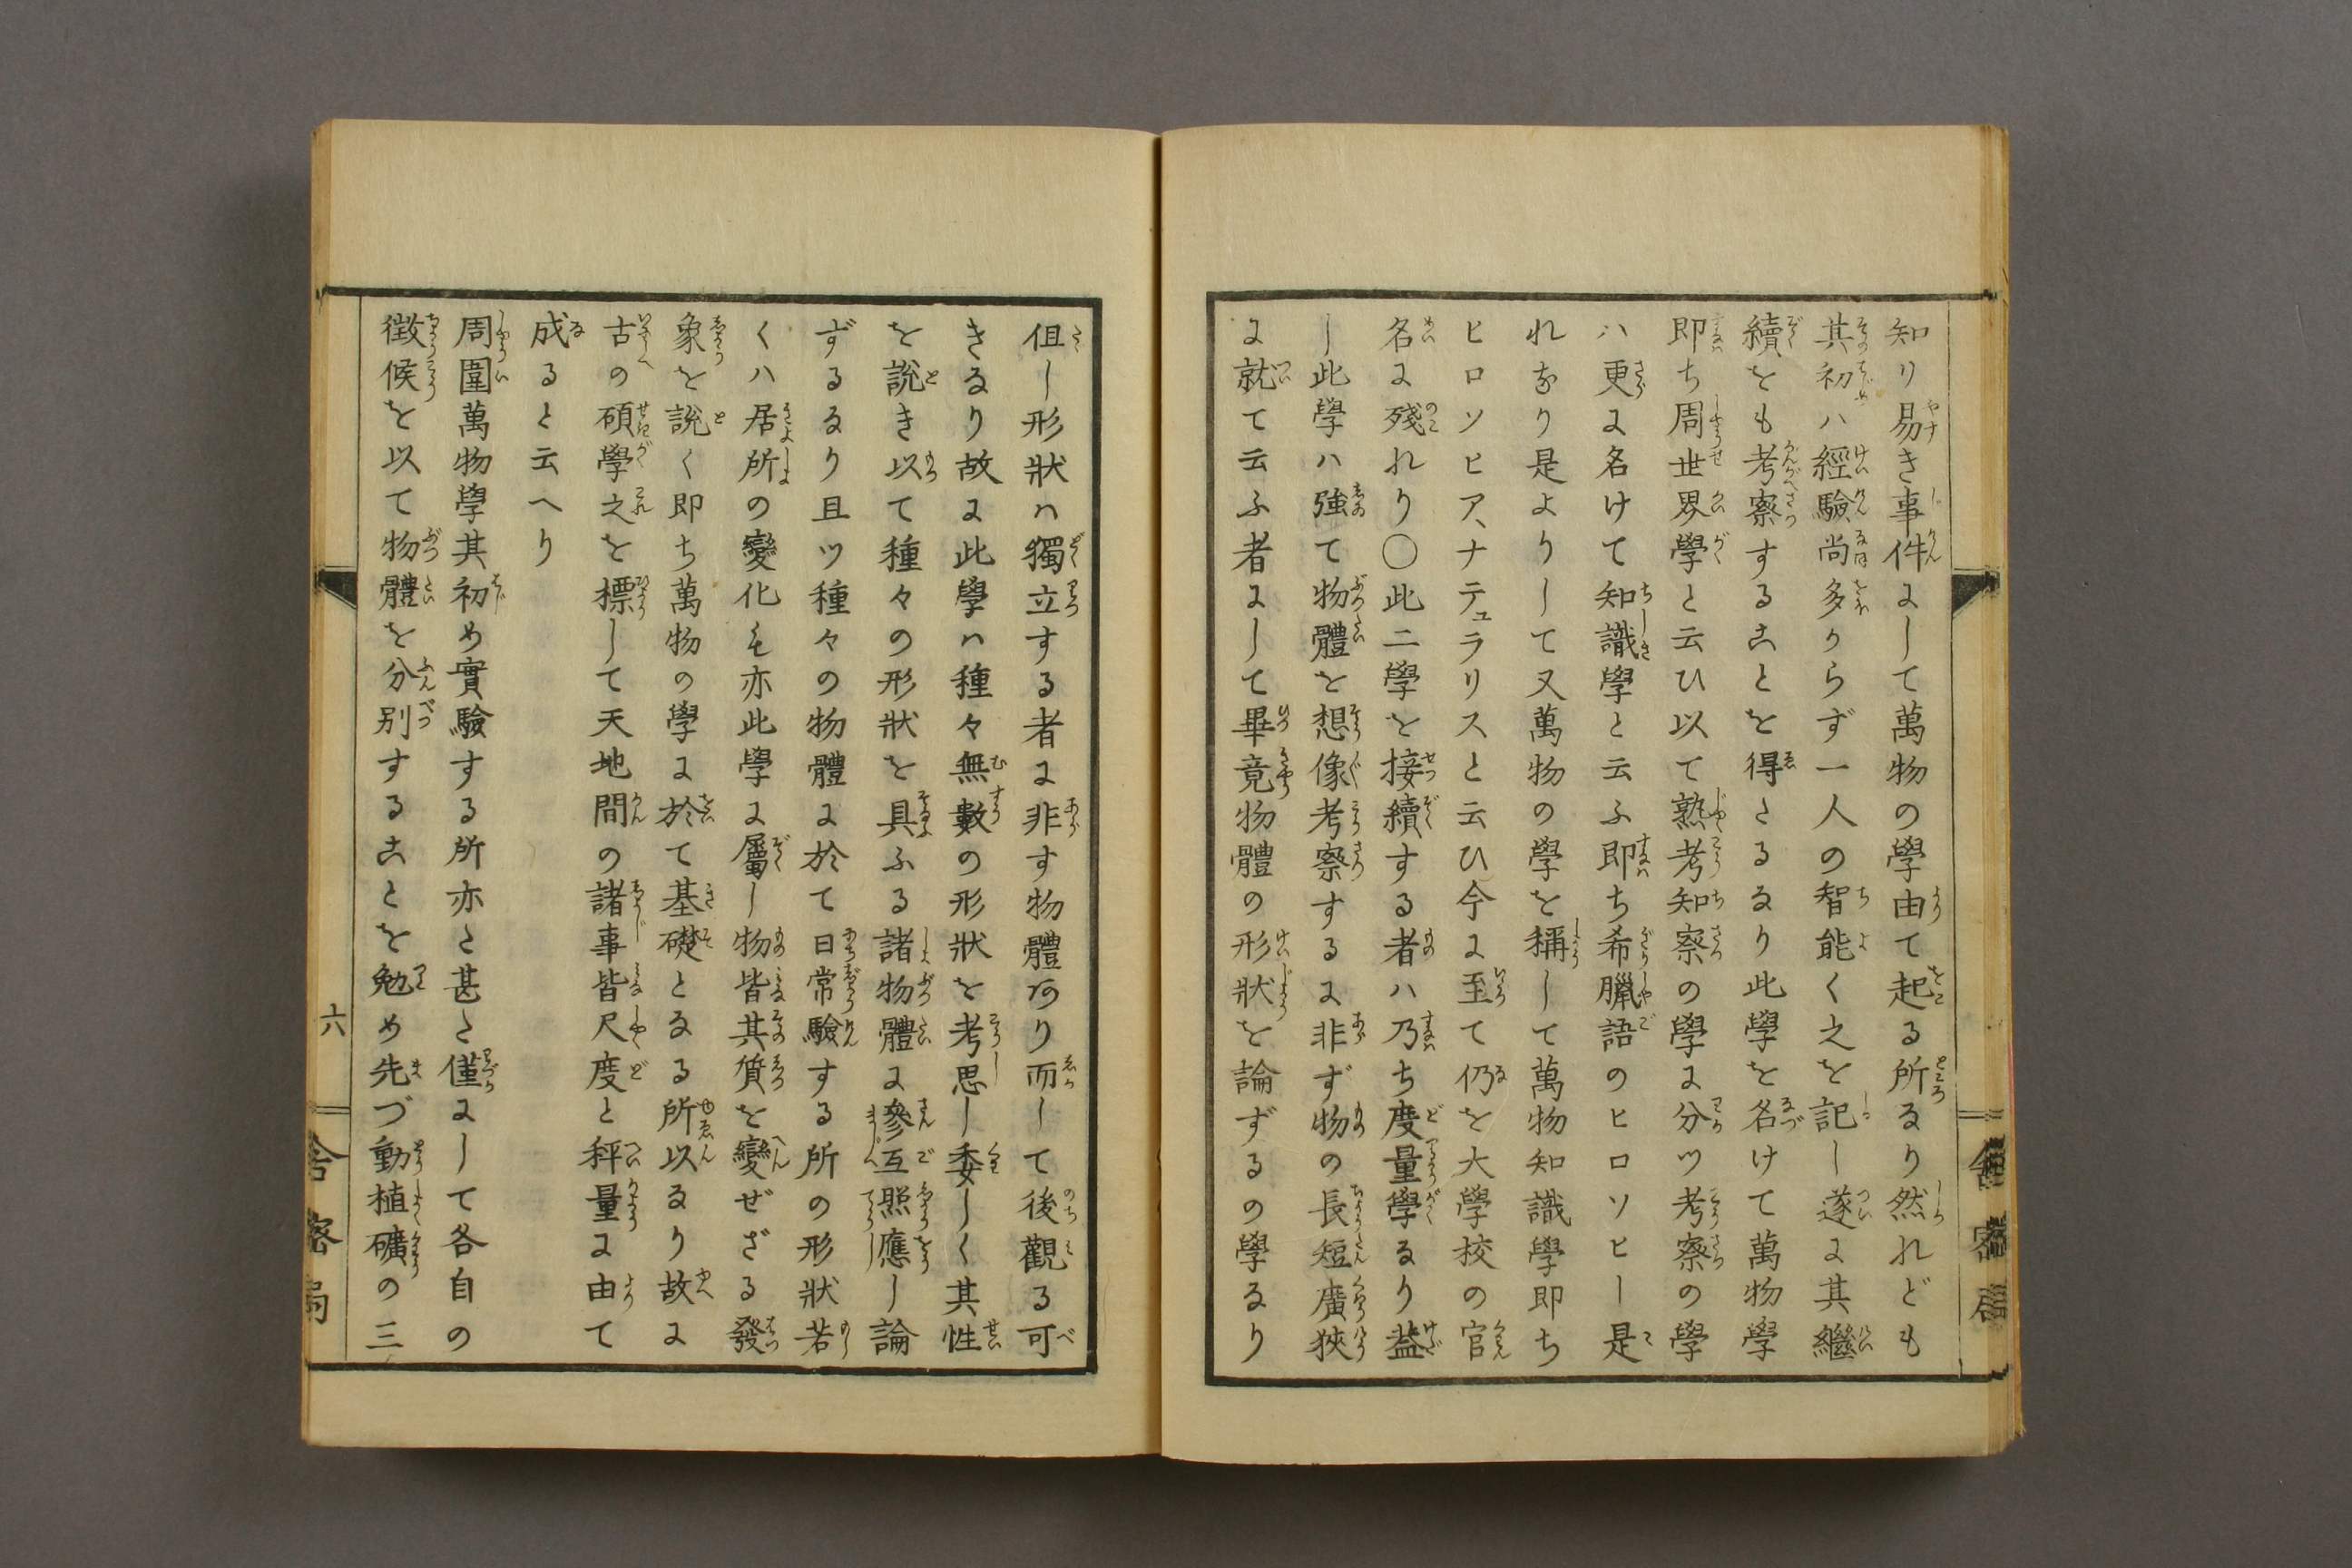 知り易き事件にして萬物の學由て起る所なり然れども
其初ハ經驗尚多からず一人の智能く之を記し遂に其繼
續をも考察することを得さるなり此學を名けて萬物學
即ち周世界學と云ひ以て熟考知察の學に分ツ考察の學
ハ更に名けて知識學と云ふ即ち希臘語のヒロソヒー是
れなり是よりして又萬物の學を稱して萬物知識學即ち
ヒロソヒア、ナテュラリスと云ひ今に至て仍を大學校の官
名に殘れり〇此二學を接續する者ハ乃ち度量學なり蓋
し此學ハ強て物體を想像考察するに非ず物の長短廣狹
に就て云ふ者にして畢竟物體の形狀を論ずるの學なり
伹し形狀ハ獨立する者に非す物體あり而して後觀る可
きなり故に此學ハ種々無數の形狀を考思し委しく其性
を說き以て種々の形狀を具ふる諸物體に參互照應し論
ずるなり且ツ種々の物體に於て日常驗する所の形狀若
くハ居所の變化も亦此學に屬し物皆其質を變ぜざる發
象を說く即ち萬物の學に於て基礎となる所以なり故に
古の碩學之を標して天地間の諸事皆尺度と秤量に由て
成ると云へり
周圍萬物學其初め實驗する所亦た甚た僅にして各自の
徵候を以て物體を分別することを勉め先づ動植礦の三
六
舎密局